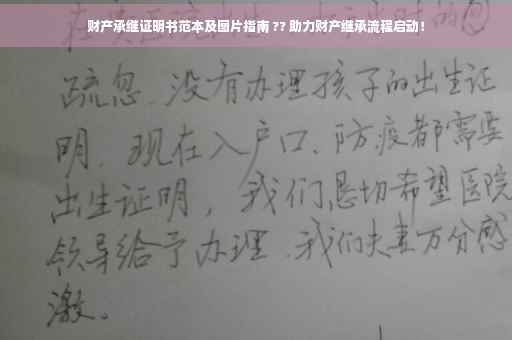 财产承继证明书范本及图片指南 ?? 助力财产继承流程启动！
疏忽、没有办理孩子的出生证
明、现在入户口、防疫都需要
出生证明，我们恳切希望医院
领导给予办理、我们夫妻万分感
激。